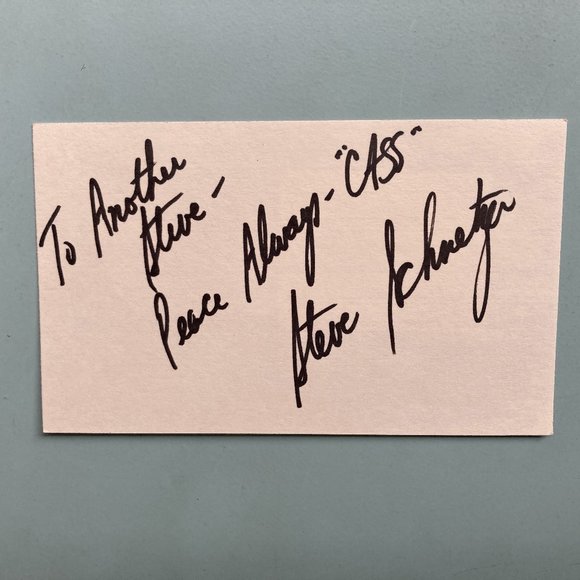 To Another
Steve -
Peace Always - "CASS"
Steve Schnetzer